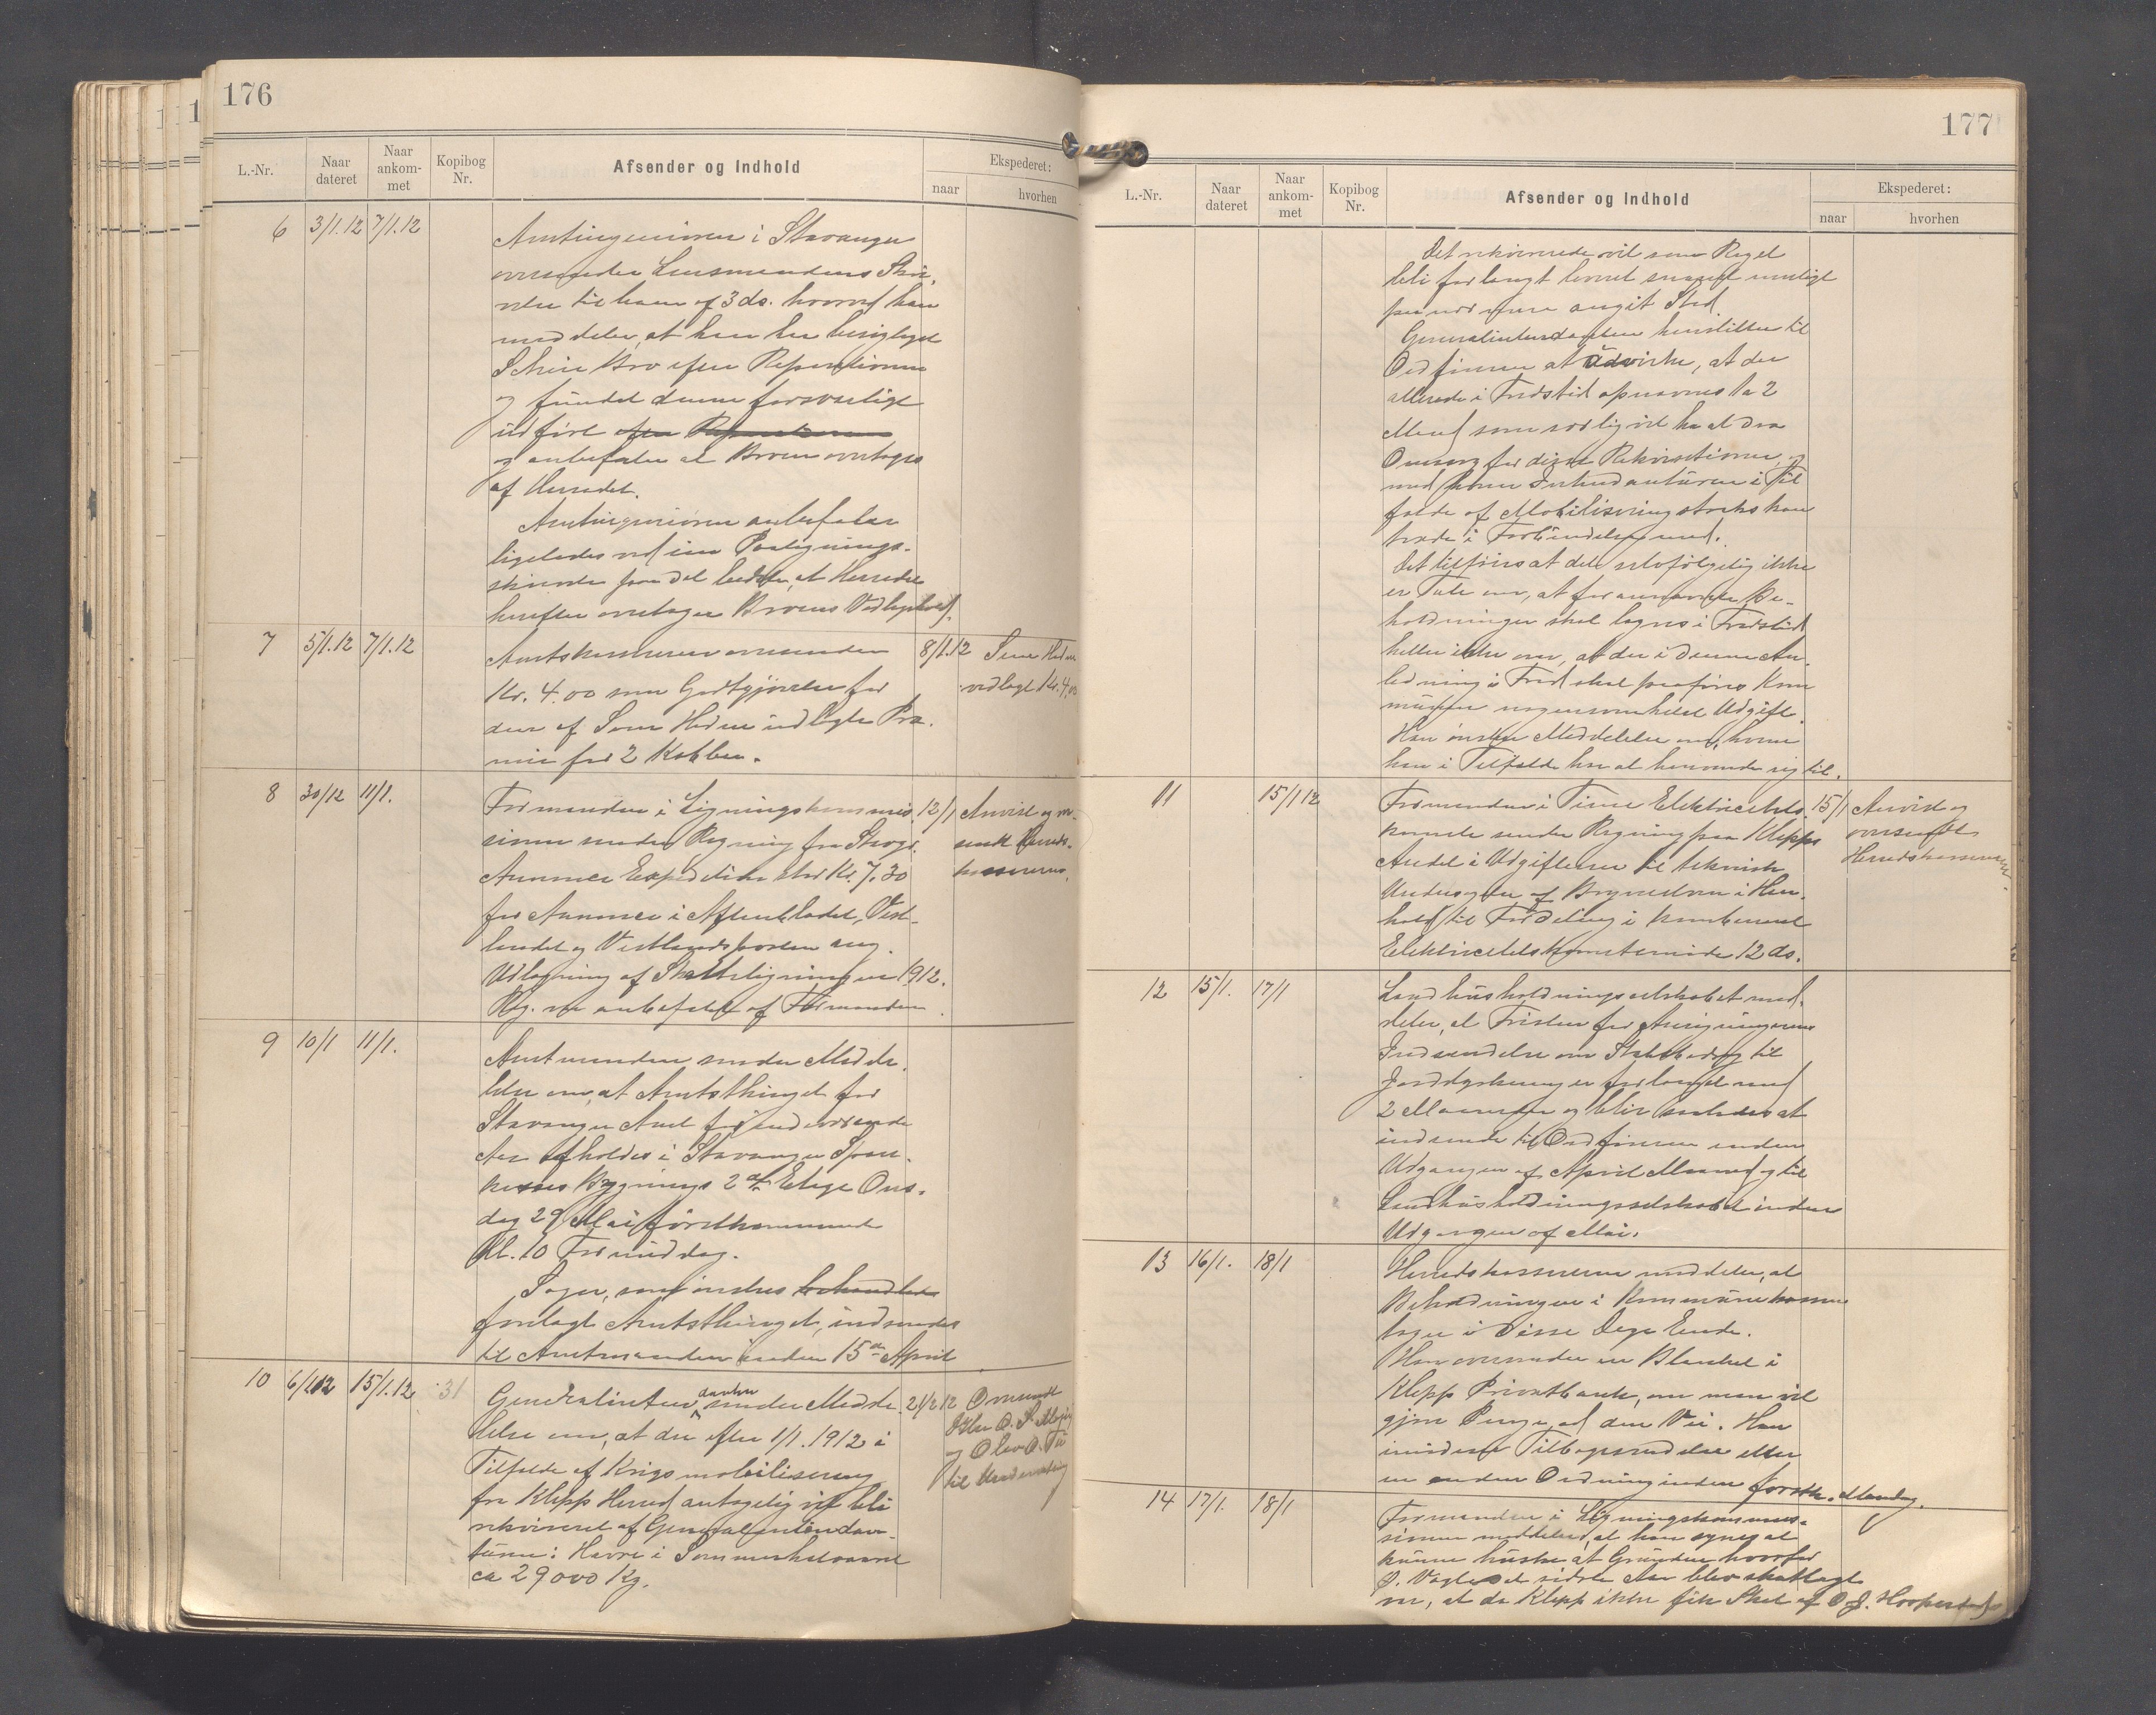 176
L.-Nr.
Naar dateret
Naar ankom- met
Kopibog Nr.
Afsender og Indhold
Ekspederet:
naar
hvorhen
6 3/1.12 7/1.12
Amtingeniøren i Stavanger
oversender Lensmandens Skri-
velse til ham af 3 ds. hvorved han
meddeler, at han har besigtiget
Bro efter Reparationen
og fundet denne forsvarligt
udført efter Reparationen
og anbefaler at Broen overtages
af Herredet.
Amtingeniøren anbefaler
ligeledes
paa det bedste, at Herredet
herefter overtager Broens Vedligehold.
7 5/1.12 7/1.12
Amtskassereren oversender
Kr. 4.00 som Godtgjørelse for
den af Hadne udlagte Præ-
mie for 2 Kobber.
8/1.12
vedlagt Kr. 4,00
8 30/12 11/1.
Formanden i Ligningskommis-
sionen sender Regning fra
Annonce Expedition stor Kr. 7.30
for Annonce i Aftenbladet, Vest-
landet og Vestlandsposten ang.
Udlægning af Skatteligningen 1912.
Reg. er anbefalet af Formanden.
12/1 Anvist og over-
sendt Herreds-
kassereren.
9 10/1 11/1.
Amtmanden sender Medde-
lelse om, at Amtsthinget for
Stavanger Amt for indeværende
Aar afholdes i Stavanger Spare-
kasses Bygnings 2den Etage Ons-
dag 29 Mai førstkommende
Kl. 10 Formiddag.
Sager, som ønskes behandlede
forelagt Amtsthinget, indsendes
til Amtmanden inden 15de April.
10 6/1 12 15/1.12 31
Generalintendanten sender Medde-
lelse om, at der efter 1/1. 1912 i
Tilfælde af Krigsmobilisering
fra Klepp Herred antagelig vil bli
rekvireret af Generalintendan-
turen: Havre i Sommerhalvaaret
ca 29000 Kg.
21/2 12 Omsendt
og Olav O. Tu
til Underretning
177
L.-Nr.
Naar dateret
Naar ankom- met
Kopibog Nr.
Afsender og Indhold
Ekspederet:
naar
hvorhen
Det rekvirerede vil som Regel
bli forlangt leveret snarest muligt
paa nærmere angit Sted.
Generalintendanten henstiller til
Ordføreren at udvirke, at der
allerede i Fredstid opnævnes 1 a 2
Mænd som særlig vil ha at dra
Omsorg for disse Rekvisitioner, og
med hvem Intendanturen i Til-
fælde af Mobilisering straks kan
træde i Forbindelse med.
Det tilføies at det selvfølgelig ikke
er Tale om, at forannævnte Be-
holdninger skal lagres i Fredstid
heller ikke om, at der i denne An-
ledning i Fred skal paaføres Kom-
munen nogensomhelst Udgift.
Han ønsker Meddelelse om, hvem
han i Tilfælde har at henvende sig til.
11 15/1 12
Formanden i Time Elektricitets-
komite sender Regning paa Klepps
Andel i Udgifterne til teknisk
Undersøgelse af i Hen-
hold til Fordeling i kombineret
Elektricitetskomitemøde 12 ds.
15/1 Anvist og
oversendt
Herredskassereren.
12 15/1. 17/1
Landhusholdningsselskabet med-
deler, at Fristen for Ansøgningernes
Indsendelse om Statsbidrag til
Jorddyrkning er forlænget med
2 Maaneder og blir saaledes at
indsende til Ordføreren inden
Udgangen af April Maaned og til
Landhusholdningsselskabet inden
Udgangen af Mai.
13 16/1. 18/1
Herredskassereren meddeler, at
Beholdningen i Kommunekassen
tager i disse Dage Ende.
Han oversender en Blanket i
Klepp Privatbank, om man vil
gjøre Penge ad den Vei. Han
imødeser Tilbagesendelse eller
en anden Ordning inden førstk. Mandag.
14 17/1. 18/1
Formanden i Ligningskommis-
sionen meddeler, at han synes at
kunne huske at Grunden hvorfor
O. Vagle det sidste Aar blev skatlagt
var, at da Klepp ikke fik Skat af O J.